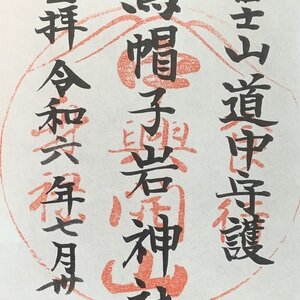 士山道中守護
烏帽子岩神社
拝令和六年七月卅
興開山